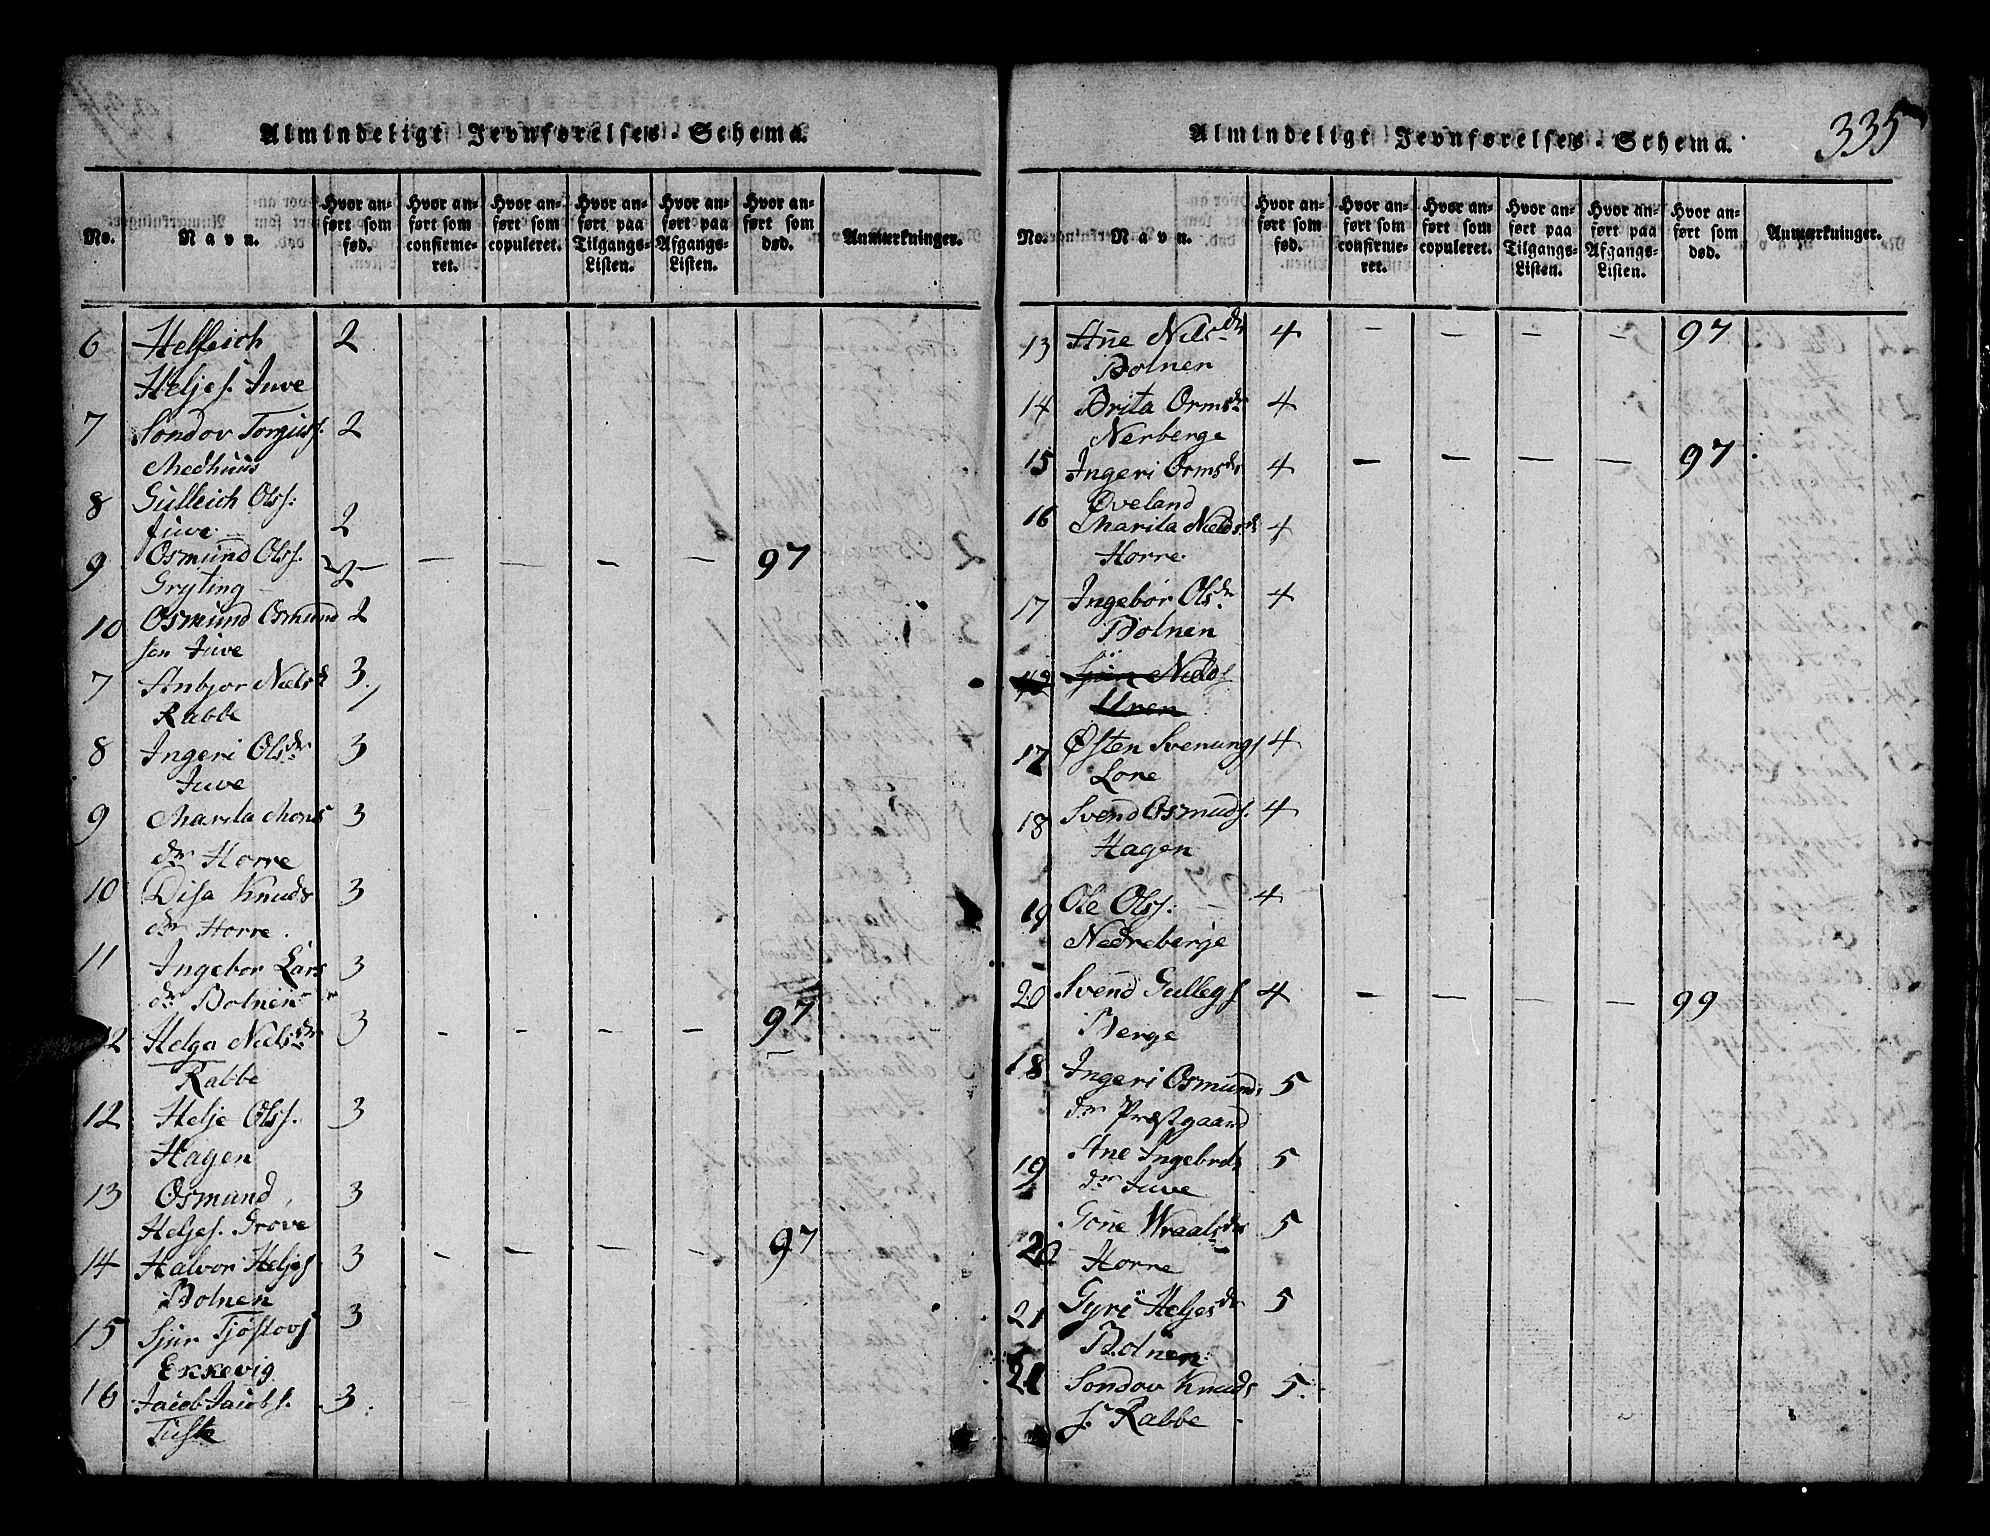 Almindeligt Jevnførelses-Schema.
No.
Navn.
Hvor an-
ført som
fød.
Hvor an-
ført som
confirme-
ret.
Hvor an-
ført som
copuleret.
Hvor an-
ført paa
Tilgangs-
Listen.
Hvor an-
ført paa
Afgangs-
Listen.
Hvor an-
ført som
død.
Anmærkninger.
6 Helleich 2
Heljes. Juve
7 Sondov Torgiuss. 2
Medhuus
8 Gulleich Olss:
Juve. 2
9 Osmund Olss. 2 — — — — 97
Gryting
10 Osmund Osmund 2
sen Juve
7 Anbjor Niels d 3
Rabbe
8 Ingeri Olsdr 3
Juve
9 Marita Mons 3
dr Horre
10 Disa Knuds 3
dr Horre.
11 Ingebor Lars 3
dr Bolnen
12 Helga Nielsdr 3 - - - - 97
Rabbe
12 Helje Olss. 3
Hagen
13 Osmund 3
Heljes. Grove
14 Halvor Heljes 3 - - - - 97
Bolnen
15 Sjur Tjøstovs 3
Ekkevig
16 Jacob Jacobs. 3.
Tusk
Almindeligt Jevnførelses-Schema.
335
No.
Navn.
Hvor an-
ført som
fød.
Hvor an-
ført som
confirme-
ret.
Hvor an-
ført som
copuleret.
Hvor an-
ført paa
Tilgangs-
Listen.
Hvor an-
ført paa
Afgangs-
Listen.
Hvor an-
ført som
død.
Anmærkninger.
13 Ane Nilsdr 4 - - - - 97
Bolnen
14 Brita Ormsdr 4
Nerberge
15 Ingeri Ormsdr 4 — — — — 97
Øveland
16 Marita Nields d 4
Horre
17 Ingebor Olsdr 4
Bolnen
Nields
Uren
17 Østen Svenungs 4
Lone
18 Svend Osmuds. 4
Hagen
19 Ole Olss. 4
Nedreberge
20 Svend Gullegs 4 - - - - 99
Berge
18 Ingeri Osmunds 5
dr Præstgaard
19 Ane Ingebrets 5
dr Juve
20 Gone Wraalsdr 5
Horre
21 Gyri Heljesdr 5
Bolnen
21 Sondov Knuds 5.
s. Rabbe